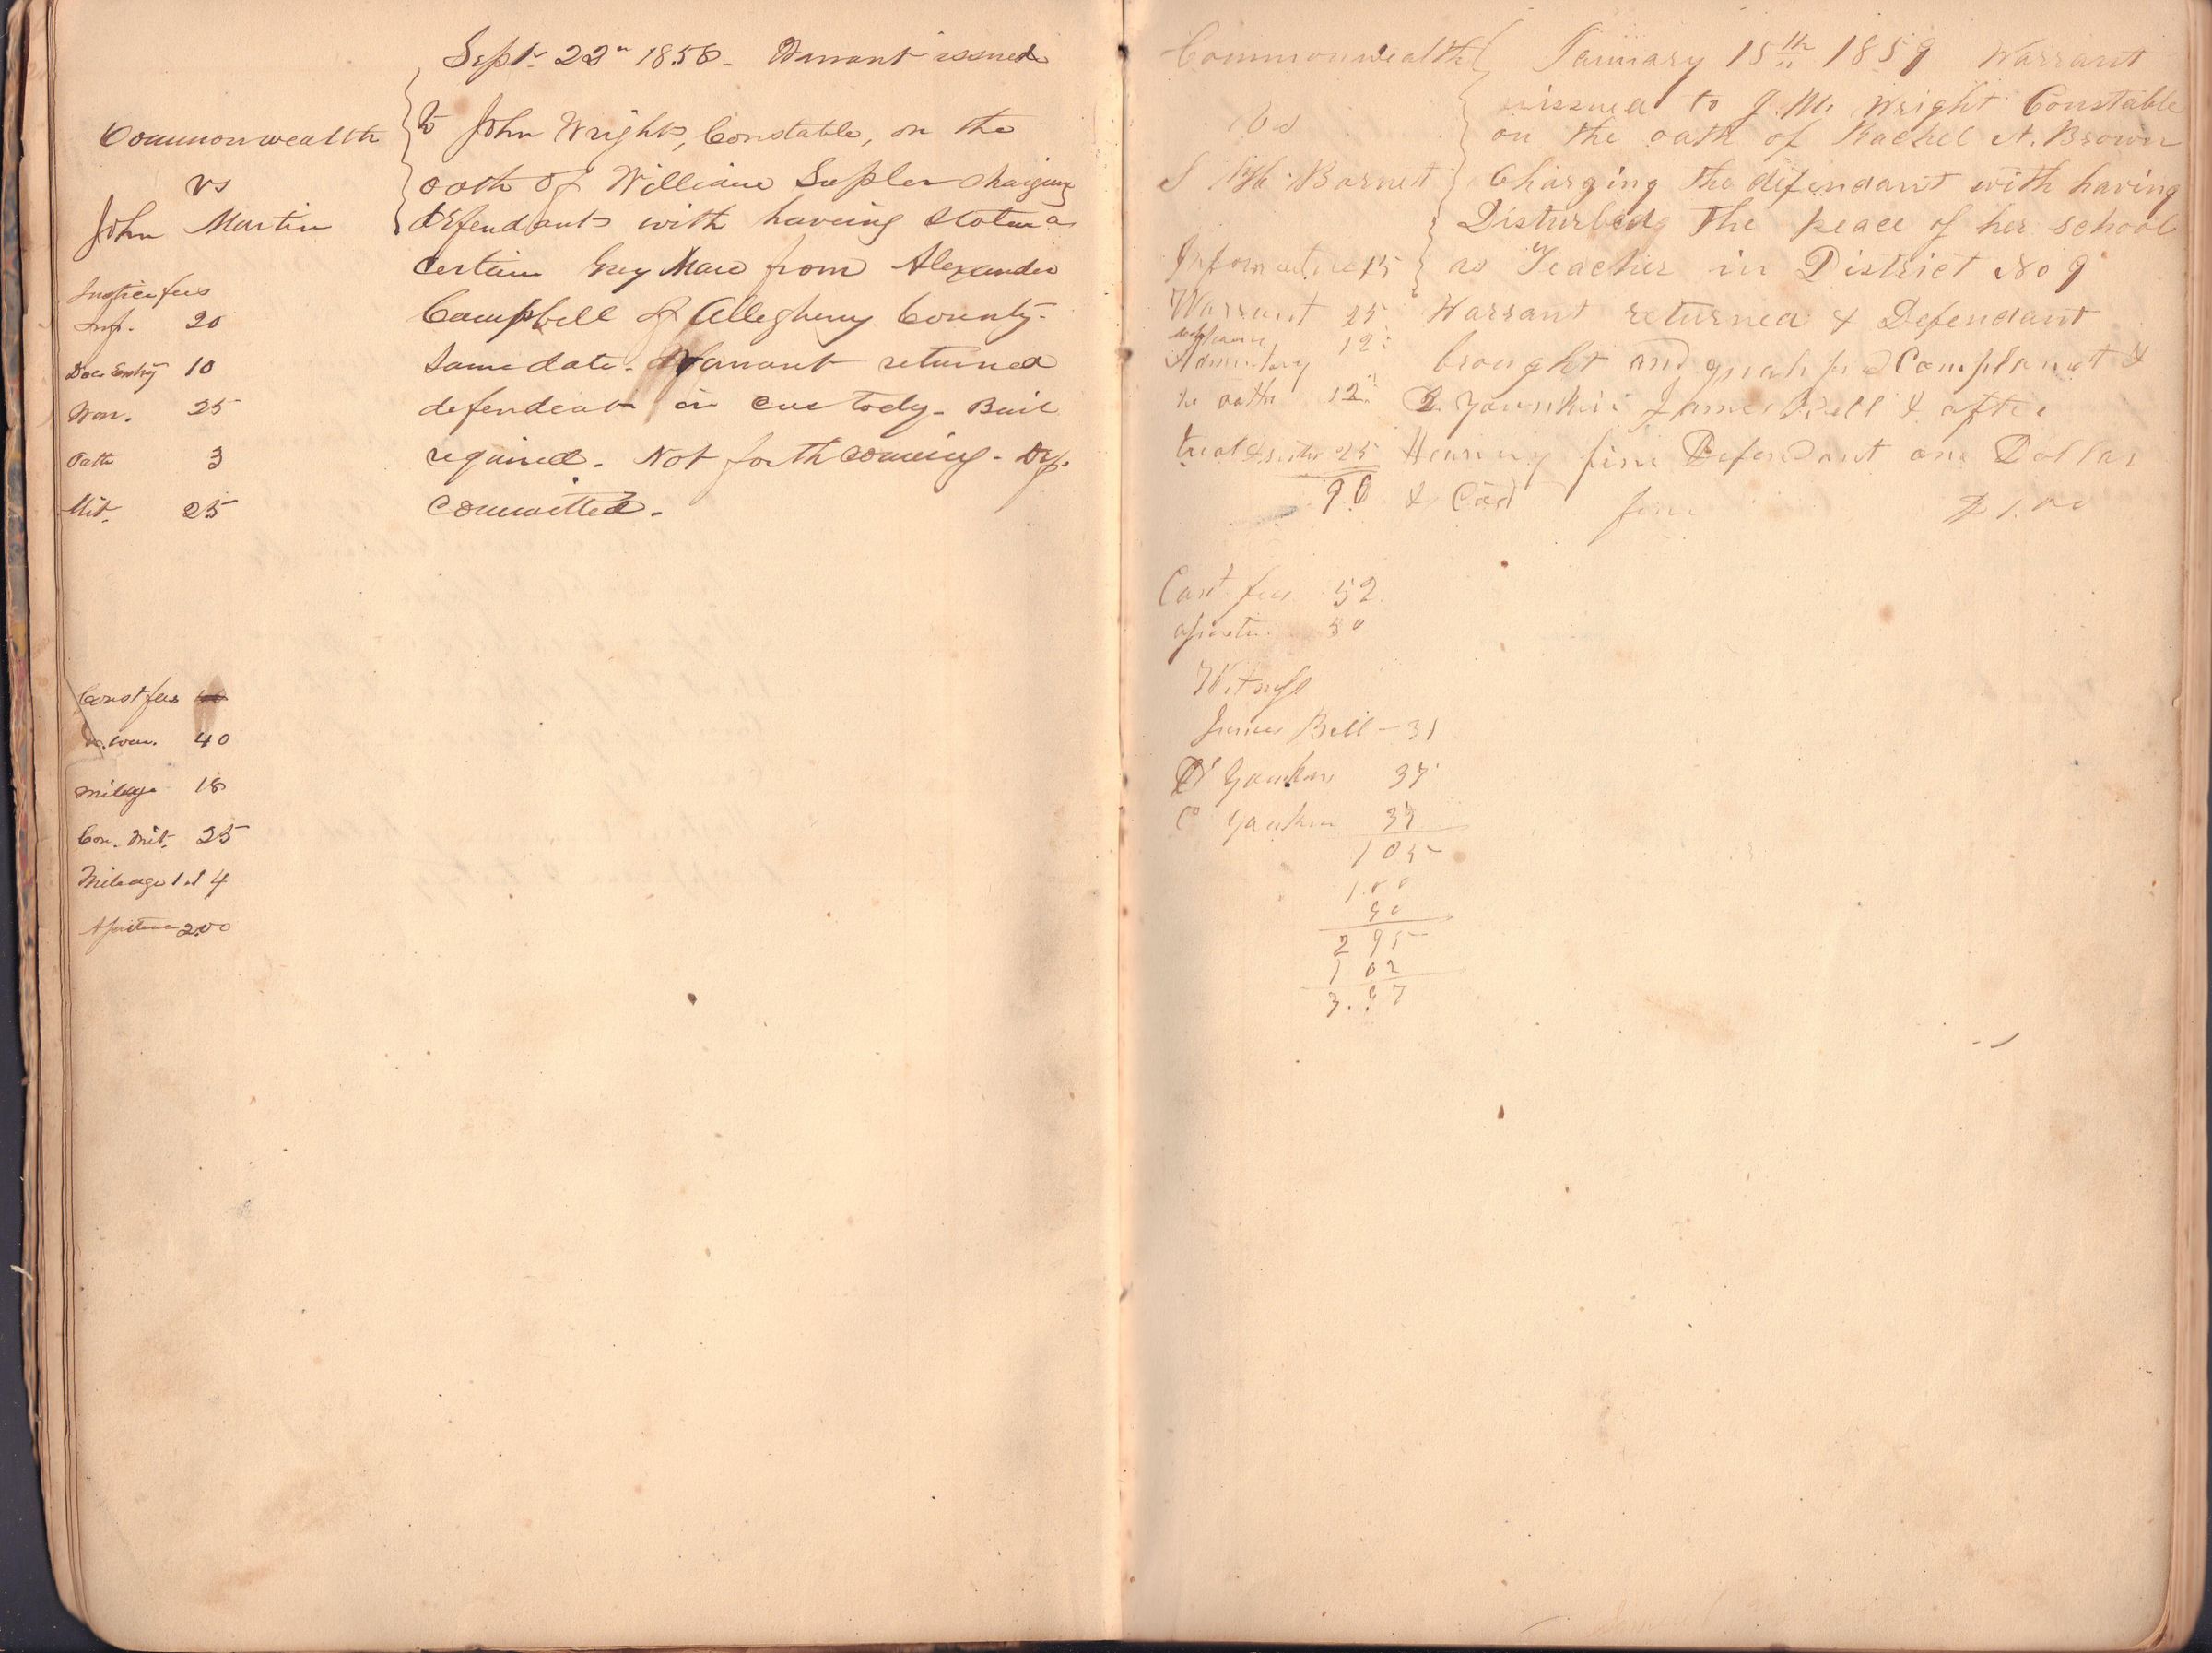 Sept 22n 1858 - Warrant issued
Commonwealth
vs
John Martin
to John Wright, Constable, on the
oath of William Suplen charging
defendants with having stolen a
certain Grey Mare from Alexander
Campbell of Allegheny County.
Same date. Warrant returned
defendant in custody. Bail
required. Not forthcoming. Def.
committed.
Justice fees
Inf. 20
Doc Entry 10
War. 25
Oath 3
Mit. 25
Const fees
war. 40
Mileage 18
Con. Mit. 25
Mileage 1.14
200
Commonwealth
vs
Barnet
January 15th 1859 Warrant
issued to J. M. Wright Constable
on the oath of Rachel A. Brown
Charging the defendant with having
Disturbed The peace of her school
as Teacher in District No 9
Warrant returned & Defendant
brought and Complanant &
James Bell & after
Hearing fine Defendant one Dollar
& Cost fine $1.00
Information 15
Warrant 25
12
oath 12
trial 25
90
Cost fees 52
50
Witness
James Bell - 31
Yaunkin 37
C Yaunkin 37
105
1.00
90
2 95
1 02
3.97